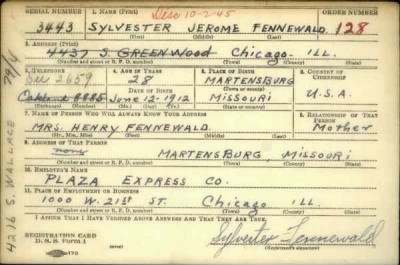 SERIAL NUMBER 1. NAME (Print) Dec 10-2-45 ORDER NUMBER
3443 SYLVESTER JEROME FENNEWALD 128
2. ADDRESS (Print)
4437 S. GREENWOOD Chicago ILL.
(Number and street or R. F. D. number) (Town) (County) (State)
3. TELEPHONE 4. AGE IN YEARS 5. PLACE OF BIRTH 6. COUNTRY OF CITIZENSHIP
2659 28 MARTENSBURG
DATE OF BIRTH (Town or county)
8885 June-12-1912 MISSOURI U.S.A.
(Mo.) (Day) (Yr.) (State or country)
7. NAME OF PERSON WHO WILL ALWAYS KNOW YOUR ADDRESS 8. RELATIONSHIP OF THAT PERSON
MRS. HENRY FENNEWALD Mother
(Mr., Mrs., Miss) (First) (Middle) (Last)
9. ADDRESS OF THAT PERSON
MARTENSBURG, MISSOURI
(Number and street or R. F. D. number) (Town) (County) (State)
10. EMPLOYER'S NAME
PLAZA EXPRESS CO.
11. PLACE OF EMPLOYMENT OR BUSINESS
1000 W. 21st ST. Chicago ILL.
(Number and street or R. F. D. number) (Town) (County) (State)
I AFFIRM THAT I HAVE VERIFIED ABOVE ANSWERS AND THAT THEY ARE TRUE.
REGISTRATION CARD
D. S. S. Form 1
Sylvester Fennewald
(Registrant's signature)
4216 S. WALLACE